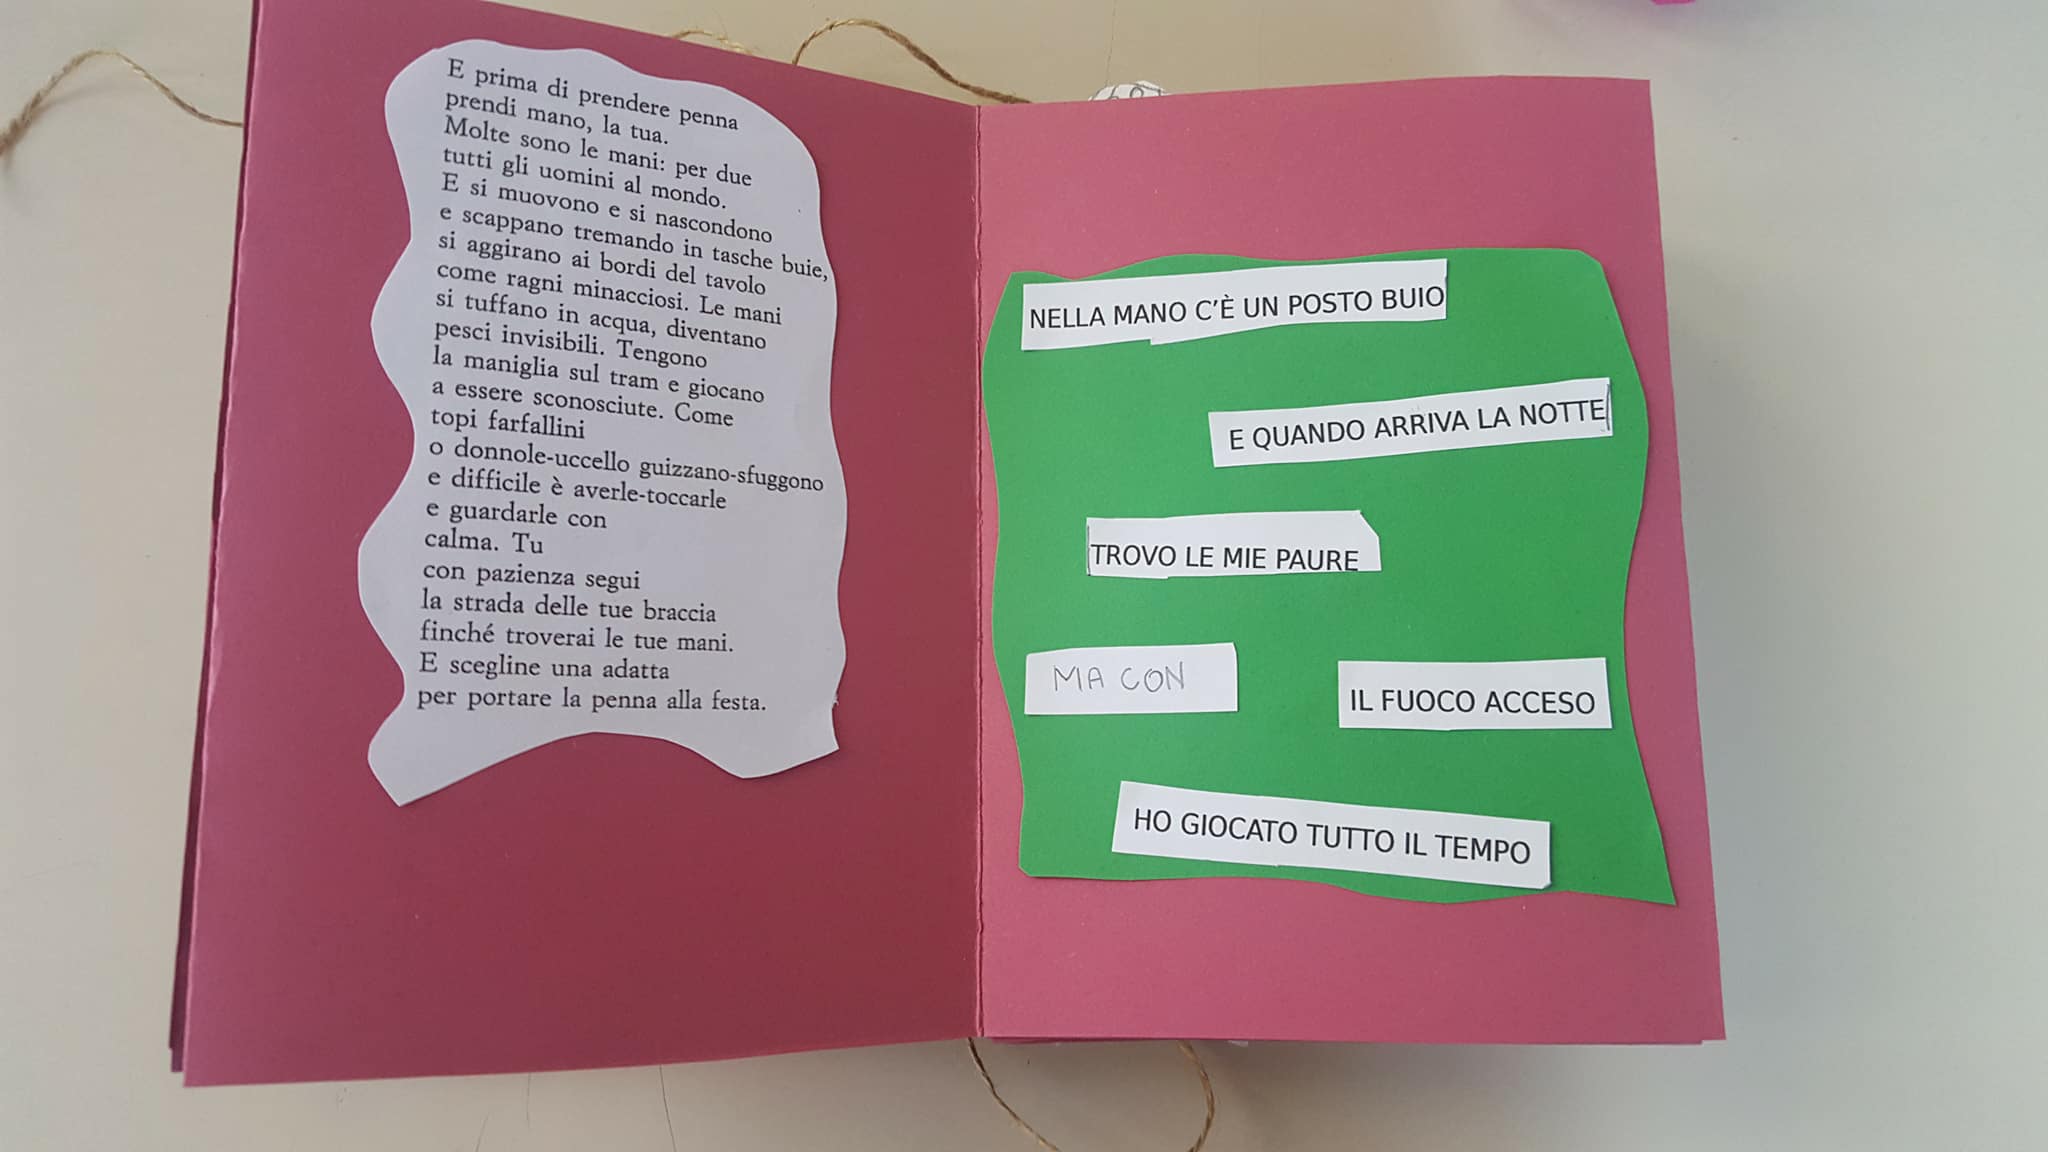 E prima di prendere penna
prendi mano, la tua.
Molte sono le mani: per due
tutti gli uomini al mondo.
E si muovono e si nascondono
e scappano tremando in tasche buie,
si aggirano ai bordi del tavolo
come ragni minacciosi. Le mani
si tuffano in acqua, diventano
pesci invisibili. Tengono
la maniglia sul tram e giocano
a essere sconosciute. Come
topi farfallini
o donnole-uccello guizzano-sfuggono
e difficile è averle-toccarle
e guardarle con
calma. Tu
con pazienza segui
la strada delle tue braccia
finché troverai le tue mani.
E scegline una adatta
per portare la penna alla festa.
NELLA MANO C'È UN POSTO BUIO
E QUANDO ARRIVA LA NOTTE
TROVO LE MIE PAURE
MA CON
IL FUOCO ACCESO
HO GIOCATO TUTTO IL TEMPO